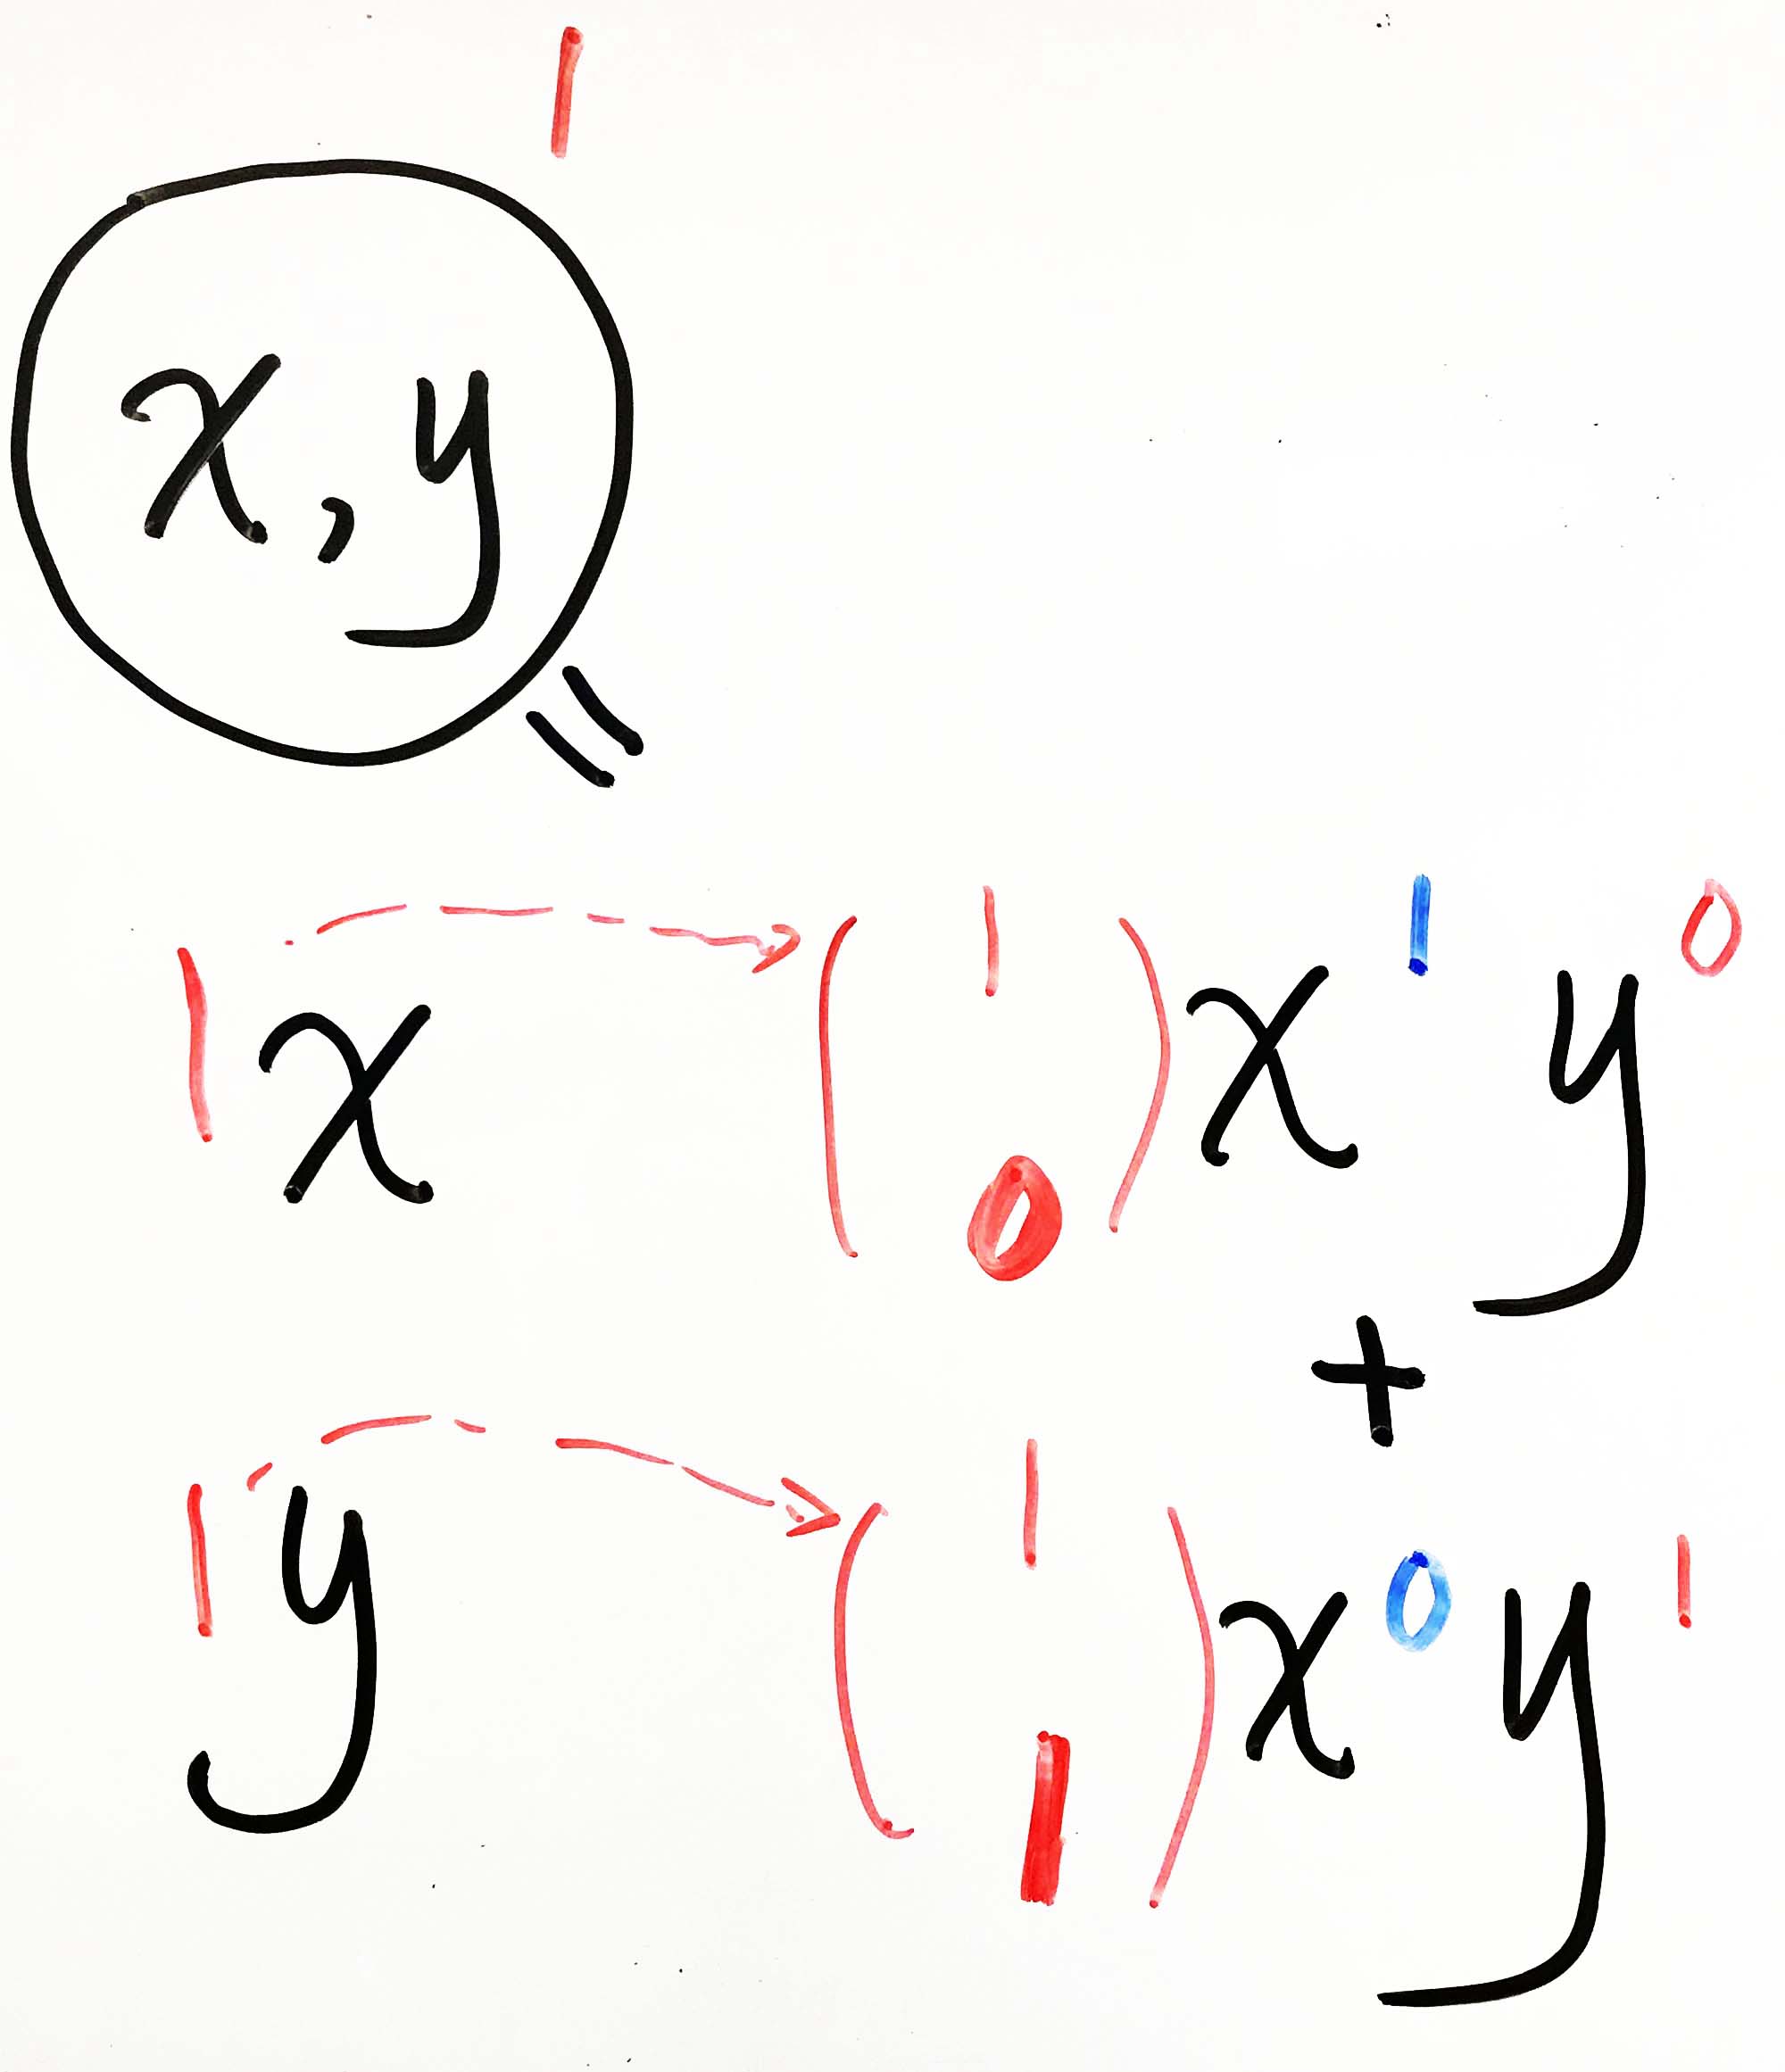 1
x, y
=
1x → (1 0) x¹ y⁰
+
1y → (1 1) x⁰ y¹